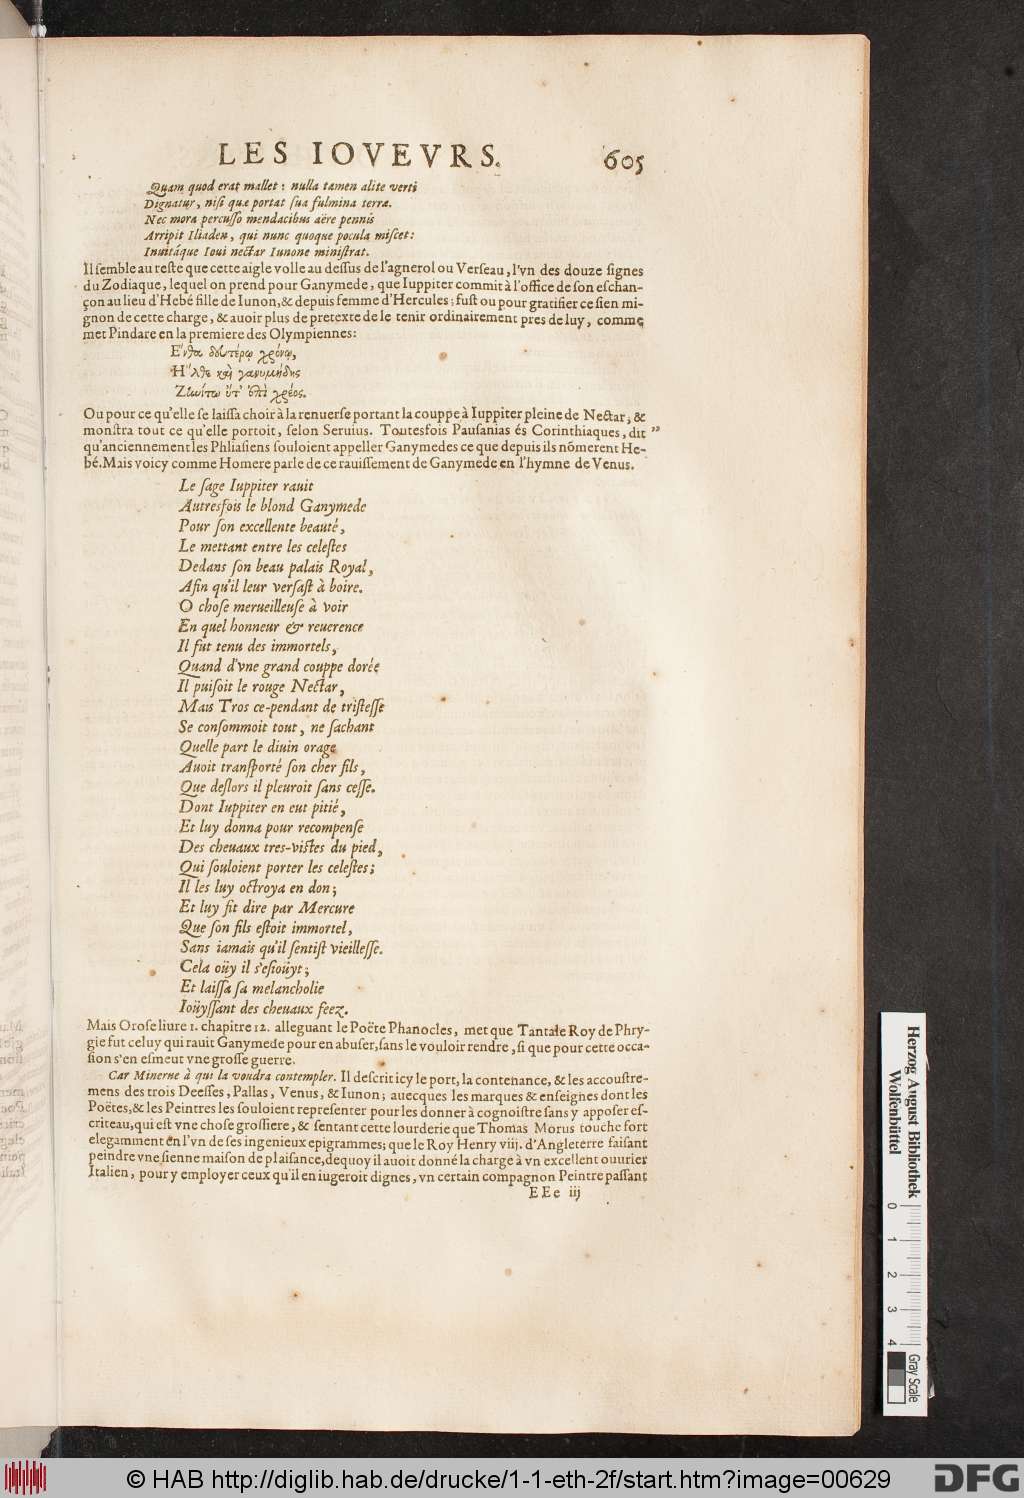 LES IOVEVRS. 605
Quam quod erat mallet : nulla tamen alite verti
Dignatur, nisi quæ portat sua fulmina terræ.
Nec mora percusso mendacibus aëre pennis
Arripit Iliaden, qui nunc quoque pocula miscet:
Inuitáque Ioui nectar Iunone ministrat.
Il semble au reste que cette aigle volle au dessus de l'agnerol ou Verseau, l'vn des douze signes
du Zodiaque, lequel on prend pour Ganymede, que Iuppiter commit à l'office de son eschan-
çon au lieu d'Hebé fille de Iunon, & depuis femme d'Hercules; fust ou pour gratifier ce sien mi-
gnon de cette charge, & auoir plus de pretexte de le tenir ordinairement pres de luy, comme
met Pindare en la premiere des Olympiennes:
Ἔνθα δευτέρῳ χρόνῳ,
Ἦλθε καὶ γανυμήδης
Ζηνίτω ὕτ' ἐπὶ χρέος.
Ou pour ce qu'elle se laissa choir à la renuerse portant la couppe à Iuppiter pleine de Nectar; &
monstra tout ce qu'elle portoit, selon Seruius. Toutesfois Pausanias és Corinthiaques, dit ”
qu'anciennement les Phliasiens souloient appeller Ganymedes ce que depuis ils nōmerent He-
bé. Mais voicy comme Homere parle de ce rauissement de Ganymede en l'hymne de Venus.
Le sage Iuppiter rauit
Autresfois le blond Ganymede
Pour son excellente beauté,
Le mettant entre les celestes
Dedans son beau palais Royal,
Afin qu'il leur versast à boire.
O chose merueilleuse à voir
En quel honneur & reuerence
Il fut tenu des immortels,
Quand d'vne grand couppe dorée
Il puisoit le rouge Nectar,
Mais Tros ce-pendant de tristesse
Se consommoit tout, ne sachant
Quelle part le diuin orage
Auoit transporté son cher fils,
Que deslors il pleuroit sans cesse.
Dont Iuppiter en eut pitié,
Et luy donna pour recompense
Des cheuaux tres-vistes du pied,
Qui souloient porter les celestes;
Il les luy octroya en don;
Et luy fit dire par Mercure
Que son fils estoit immortel,
Sans iamais qu'il sentist vieillesse.
Cela oüy il s'esioüyt;
Et laissa sa melancholie
Ioüyssant des cheuaux feez.
Mais Orose liure 1. chapitre 12. alleguant le Poëte Phanocles, met que Tantale Roy de Phry-
gie fut celuy qui rauit Ganymede pour en abuser, sans le vouloir rendre, si que pour cette occa-
sion s'en esmeut vne grosse guerre.
Car Minerne à qui la voudra contempler. Il descrit icy le port, la contenance, & les accoustre-
mens des trois Deesses, Pallas, Venus, & Iunon; auecques les marques & enseignes dont les
Poëtes, & les Peintres les souloient representer pour les donner à cognoistre sans y apposer es-
criteau, qui est vne chose grossiere, & sentant cette lourderie que Thomas Morus touche fort
elegamment en l'vn de ses ingenieux epigrammes; que le Roy Henry viij. d'Angleterre faisant
peindre vne sienne maison de plaisance, dequoy il auoit donné la charge à vn excellent ouurier
Italien, pour y employer ceux qu'il en iugeroit dignes, vn certain compagnon Peintre passant
EEe iij
Herzog August Bibliothek
Wolfenbüttel
0 1 2 3 4
Gray Scale
© HAB http://diglib.hab.de/drucke/1-1-eth-2f/start.htm?image=00629
DFG